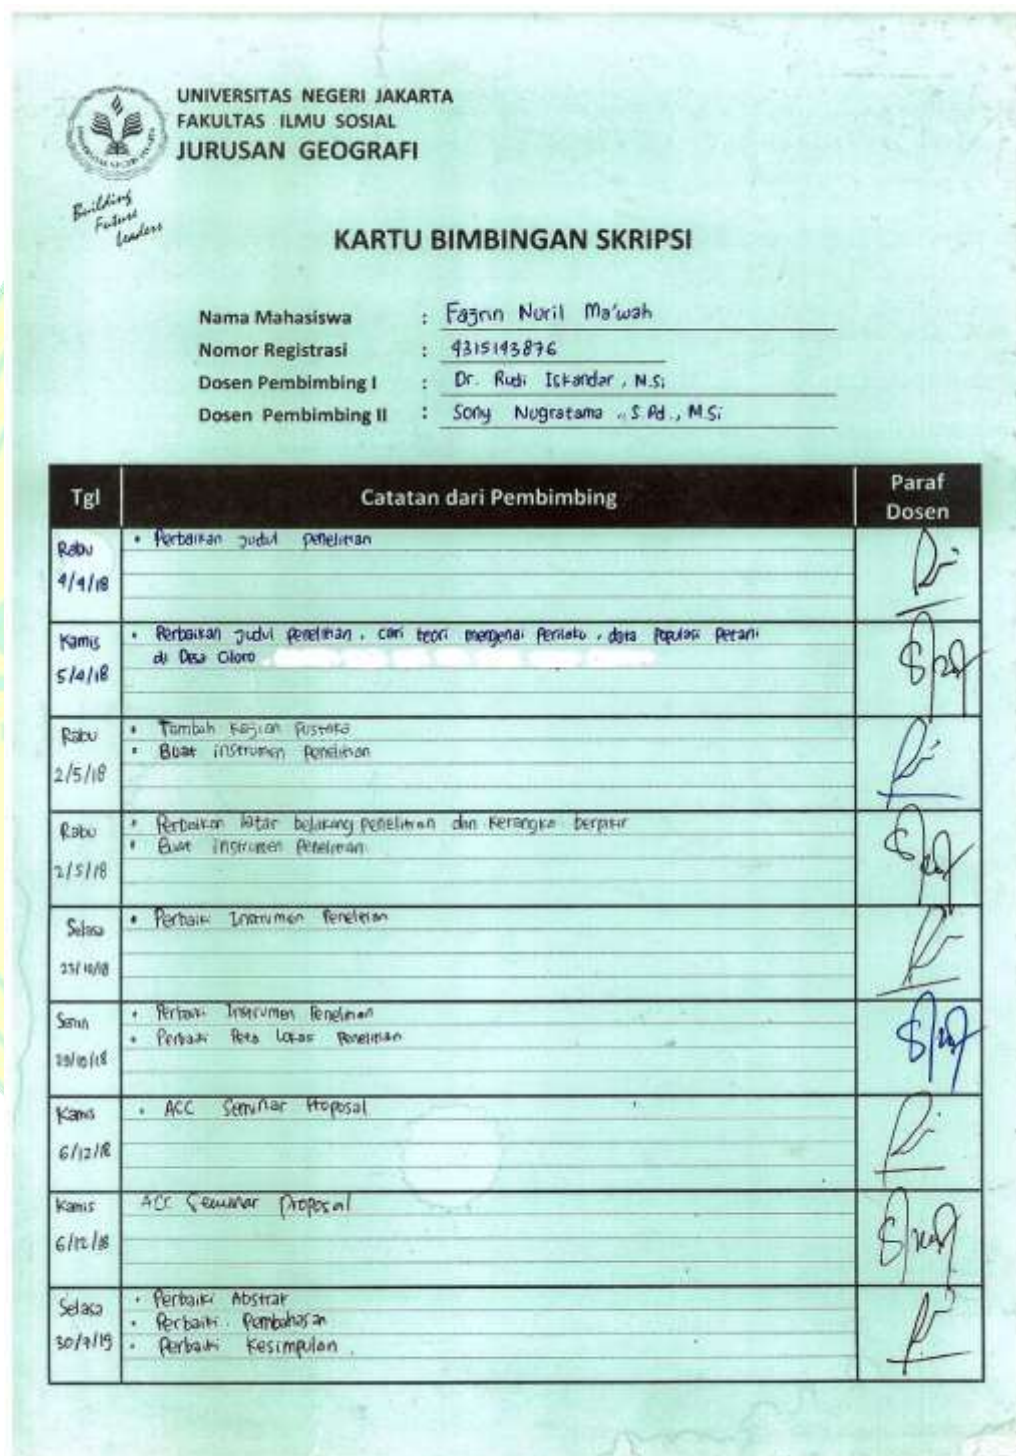 UNIVERSITAS NEGERI JAKARTA
FAKULTAS ILMU SOSIAL
JURUSAN GEOGRAFI
Building
Future
Leaders
KARTU BIMBINGAN SKRIPSI
Nama Mahasiswa : Nuril Ma'wah
Nomor Registrasi : 4315143876
Dosen Pembimbing I : Dr. Rudi Iskandar, M.Si
Dosen Pembimbing II : Sony Nugratama, S.Pd., M.Si
Tgl Catatan dari Pembimbing Paraf Dosen
Rabu • Perbaikan judul penelitian
4/4/18
Kamis • Perbaikan judul penelitian, cari teori mengenai Perilaku, data Populasi Petani
di Desa
5/4/18
Rabu • Tambah Kajian Pustaka
• Buat instrumen Penelitian
2/5/18
Rabu • Perbaikan latar belakang penelitian dan kerangka berpikir
• Buat instrumen Penelitian
2/5/18
Selasa • Perbaiki Instrumen Penelitian
23/10/18
Senin • Perbaiki Instrumen Penelitian
• Perbaiki Peta Lokasi Penelitian
29/10/18
Kamis • ACC Seminar Proposal
6/12/18
Kamis ACC Seminar Proposal
6/12/18
Selasa • Perbaiki Abstrak
• Perbaiki Pembahasan
30/7/19 • Perbaiki Kesimpulan